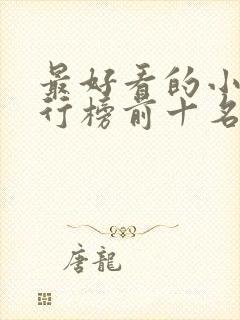 最好看的小
行榜前十名
唐龍